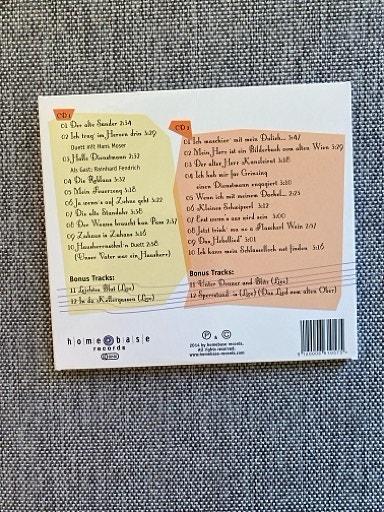 CD 1
01 Der alte Sünder 2:34
02 Ich trag' im Herzen drin 3:29
Duett mit Hans Moser
03 Hallo Dienstmann 2:32
Als Gast: Rainhard Fendrich
04 Die Reblaus 3:32
05 Mein Feuerzeug 3:18
06 Ja wenn's auf Zuhaus geht 3:22
07 Die alte Standuhr 3:38
08 Der Wanne braucht kan 2:37
09 Zuhaus is Zuhaus 3:16
10 Hausherrnsöhnl'n Duett 2:38
(Unser Vater war ein Hausherr)
Bonus Tracks:
11 Leichtes Blut (Live)
12 In da Kellergassen (Live)
CD 2
01 Ich maschier' mit mein Dulieh... 3:47
02 Mein Herz ist ein Bilderbuch vom alten Wien 3:29
03 Der alter Herr Kanzleirat 3:18
04 Ich hab mir für Grinzing
einen Dienstmann engagiert 3:10
05 Wenn ich mit meinem Dackel... 2:25
06 Kleines Schwipserl 3:12
07 Erst wann's aus wird sein 3:00
08 Jetzt trink' ma no a Flascherl Wein 2:07
09 Das Hobellied' 3:01
10 Ich kann mein Schlüsselloch net finden 3:16
Bonus Tracks:
11 Unter Donner und Blitz (Live)
12 Sperrstund is (Live) (Das Lied vom alten Ober)
home base
records
P & C
2014 by homebase records.
All rights reserved.
www.homebase-records.